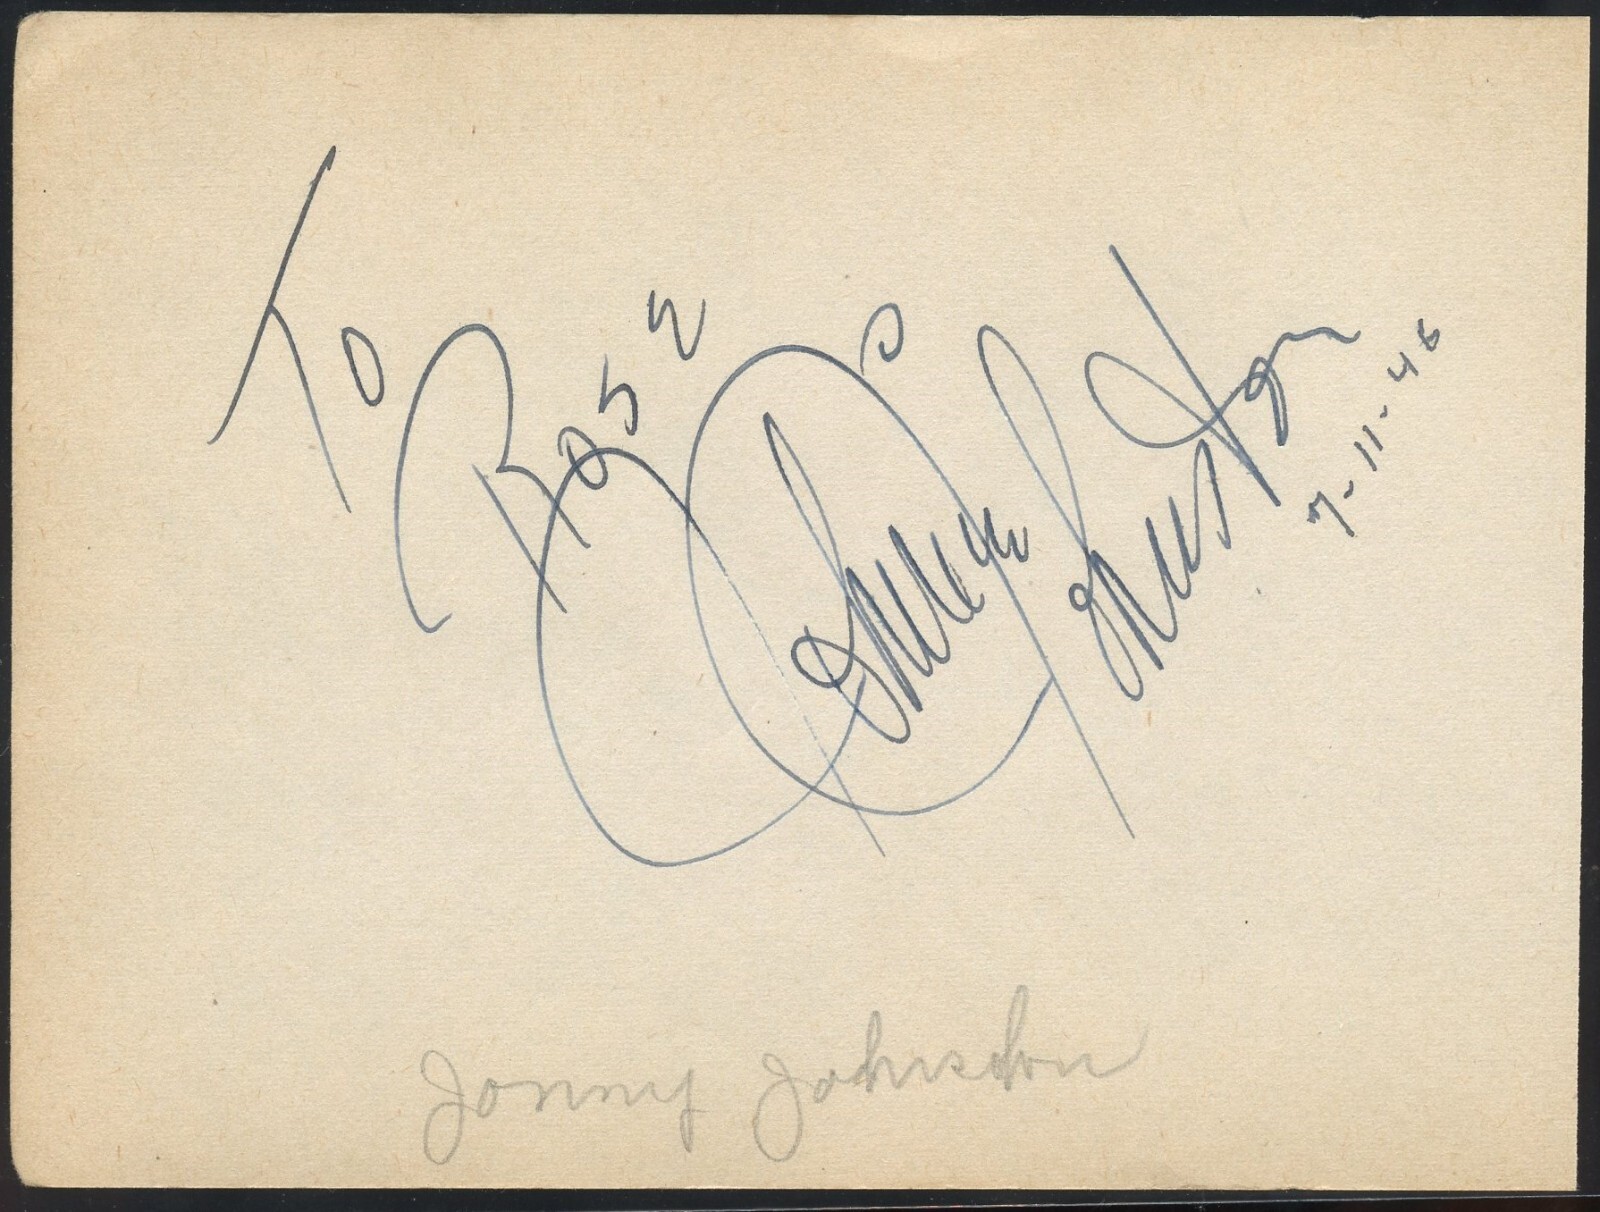 To Rose
Johnny Johnston
7-11-46
Jonny Johnston